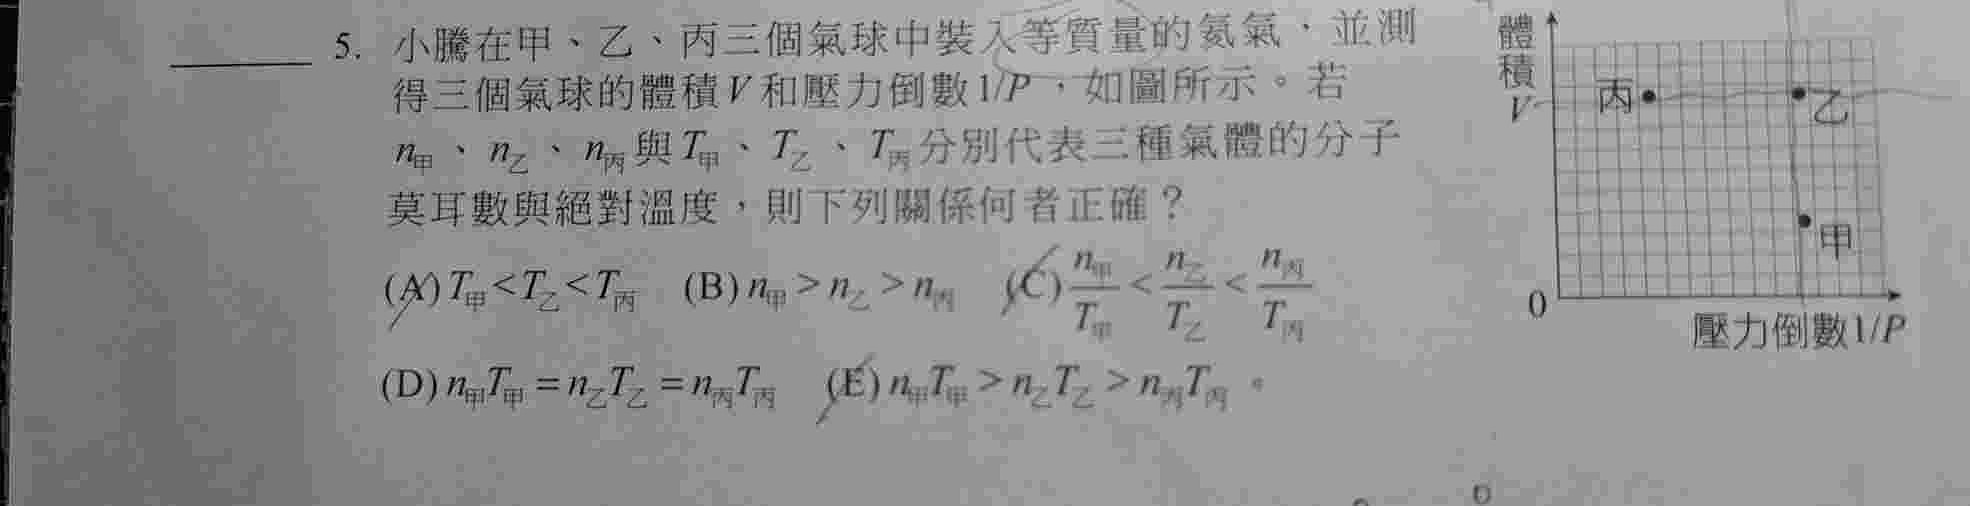 5. 小騰在甲、乙、丙三個氣球中裝入等質量的氦氣,並測
得三個氣球的體積V和壓力倒數1/P,如圖所示。若
n甲、n乙、n丙與T甲、T乙、T丙分別代表三種氣體的分子
莫耳數與絕對溫度,則下列關係何者正確?
(A) T甲<T乙<T丙 (B) n甲>n乙>n丙 (C) n甲/T甲<n乙/T乙<n丙/T丙
(D) n甲T甲=n乙T乙=n丙T丙 (E) n甲T甲>n乙T乙>n丙T丙。
體積V
丙
乙
甲
0
壓力倒數1/P